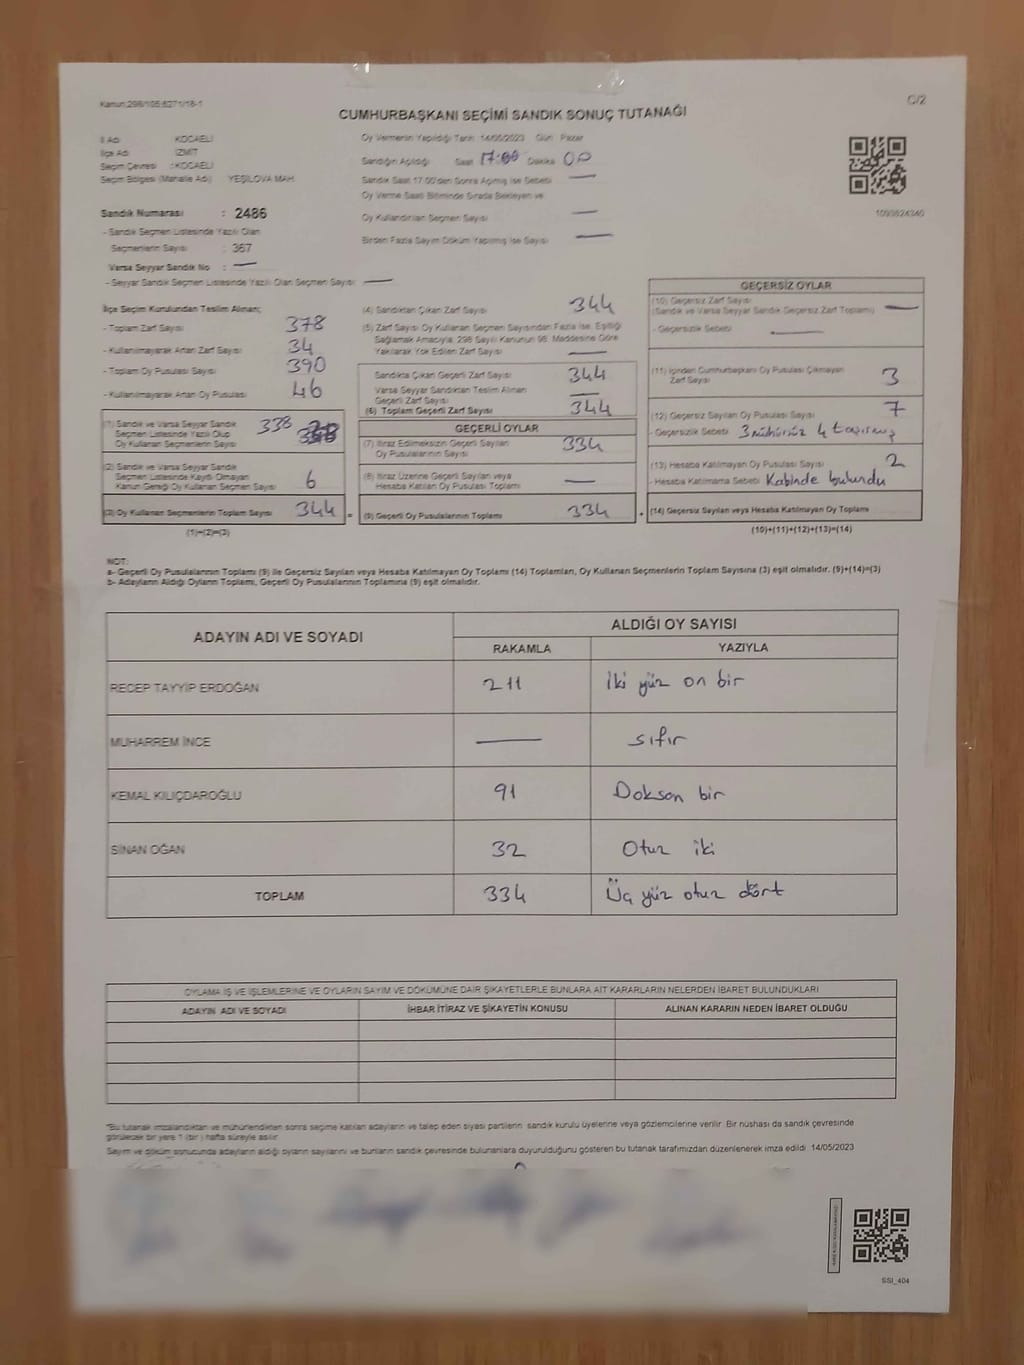 Kanun:298/105;6271/18-1
C/2
CUMHURBAŞKANI SEÇİMİ SANDIK SONUÇ TUTANAĞI
İl Adı : KOCAELİ
İlçe Adı : İZMİT
Seçim Çevresi : KOCAELİ
Seçim Bölgesi (Mahalle Adı) YEŞİLOVA MAH.
Sandık Numarası : 2486
- Sandık Seçmen Listesinde Yazılı Olan
Seçmenlerin Sayısı : 367
Varsa Seyyar Sandık No : —
- Seyyar Sandık Seçmen Listesinde Yazılı Olan Seçmen Sayısı: —
Oy Vermenin Yapıldığı Tarih: 14/05/2023 Gün : Pazar
Sandığın Açıldığı Saat 17:00 Dakika 00
Sandık Saat 17:00'den Sonra Açılmış İse Sebebi —
Oy Verme Saati Bitiminde Sırada Bekleyen ve
Oy Kullandırılan Seçmen Sayısı —
Birden Fazla Sayım Döküm Yapılmış İse Sayısı —
1093624340
İlçe Seçim Kurulundan Teslim Alınan;
- Toplam Zarf Sayısı 378
- Kullanılmayarak Artan Zarf Sayısı 34
- Toplam Oy Pusulası Sayısı 390
- Kullanılmayarak Artan Oy Pusulası 46
(1) Sandık ve Varsa Seyyar Sandık
Seçmen Listesinde Yazılı Olup
Oy Kullanan Seçmenlerin Sayısı 338
(2) Sandık ve Varsa Seyyar Sandık
Seçmen Listesinde Kaydı Olmayan
Kanun Gereği Oy Kullanan Seçmen Sayısı 6
(3) Oy Kullanan Seçmenlerin Toplam Sayısı 344 =
(1)+(2)=(3)
(4) Sandıktan Çıkan Zarf Sayısı 344
(5) Zarf Sayısı Oy Kullanan Seçmen Sayısından Fazla İse, Eşitliği
Sağlamak Amacıyla, 298 Sayılı Kanunun 98. Maddesine Göre
Yakılarak Yok Edilen Zarf Sayısı —
Sandıkta Çıkan Geçerli Zarf Sayısı 344
Varsa Seyyar Sandıktan Teslim Alınan
Geçerli Zarf Sayısı —
(6) Toplam Geçerli Zarf Sayısı 344
GEÇERLİ OYLAR
(7) İtiraz Edilmeksizin Geçerli Sayılan
Oy Pusulalarının Sayısı 334
(8) İtiraz Üzerine Geçerli Sayılan veya
Hesaba Katılan Oy Pusulası Toplamı —
(9) Geçerli Oy Pusulalarının Toplamı 334 +
GEÇERSİZ OYLAR
(10) Geçersiz Zarf Sayısı
(Sandık ve Varsa Seyyar Sandık Geçersiz Zarf Toplamı) —
- Geçersizlik Sebebi : —
(11) İçinden Cumhurbaşkanı Oy Pusulası Çıkmayan
Zarf Sayısı 3
(12) Geçersiz Sayılan Oy Pusulası Sayısı 7
- Geçersizlik Sebebi : 3 mühürsüz 4 taşırmış
(13) Hesaba Katılmayan Oy Pusulası Sayısı 2
- Hesaba Katılmama Sebebi: Kabinde bulundu
(14) Geçersiz Sayılan veya Hesaba Katılmayan Oy Toplamı
(10)+(11)+(12)+(13)=(14)
NOT:
a- Geçerli Oy Pusulalarının Toplamı (9) ile Geçersiz Sayılan veya Hesaba Katılmayan Oy Toplamı (14) Toplamları, Oy Kullanan Seçmenlerin Toplam Sayısına (3) eşit olmalıdır. (9)+(14)=(3)
b- Adayların Aldığı Oyların Toplamı, Geçerli Oy Pusulalarının Toplamına (9) eşit olmalıdır.
ADAYIN ADI VE SOYADI
ALDIĞI OY SAYISI
RAKAMLA YAZIYLA
RECEP TAYYİP ERDOĞAN 211 İki yüz on bir
MUHARREM İNCE — sıfır
KEMAL KILIÇDAROĞLU 91 Doksan bir
SİNAN OĞAN 32 Otuz iki
TOPLAM 334 Üç yüz otuz dört
OYLAMA İŞ VE İŞLEMLERİNE VE OYLARIN SAYIM VE DÖKÜMÜNE DAİR ŞİKAYETLERLE BUNLARA AİT KARARLARIN NELERDEN İBARET BULUNDUKLARI
ADAYIN ADI VE SOYADI İHBAR İTİRAZ VE ŞİKAYETİN KONUSU ALINAN KARARIN NEDEN İBARET OLDUĞU
*Bu tutanak imzalandıktan ve mühürlendikten sonra seçime katılan adayların ve talep eden siyasi partilerin sandık kurulu üyelerine veya gözlemcilerine verilir. Bir nüshası da sandık çevresinde
görülecek bir yere 1 (bir ) hafta süreyle asılır.
Sayım ve döküm sonucunda adayların aldığı oyların sayılarını ve bunların sandık çevresinde bulunanlara duyurulduğunu gösteren bu tutanak tarafımızdan düzenlenerek imza edildi. 14/05/2023
SSI_404